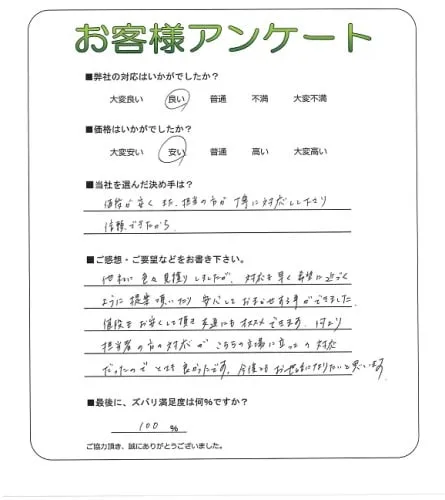 お客様アンケート
■弊社の対応はいかがでしたか？
大変良い 良い 普通 不満 大変不満
■価格はいかがでしたか？
大変安い 安い 普通 高い 大変高い
■当社を選んだ決め手は？
値段が安く また、担当の方が丁寧に対応して下さり
信頼できたから
■ご感想・ご要望などをお書き下さい。
他社に色々見積りしましたが、対応も早く希望に近づく
ように提案頂いたり安心しておまかせする事ができました。
値段もお安くして頂き友達にもオススメできます。何より
担当者の方の対応がこちらの立場に立っての対応
だったのでとても良かったです。今後ともお世話になりたいと思います。
■最後に、ズバリ満足度は何%ですか？
100 %
ご協力頂き、誠にありがとうございました。